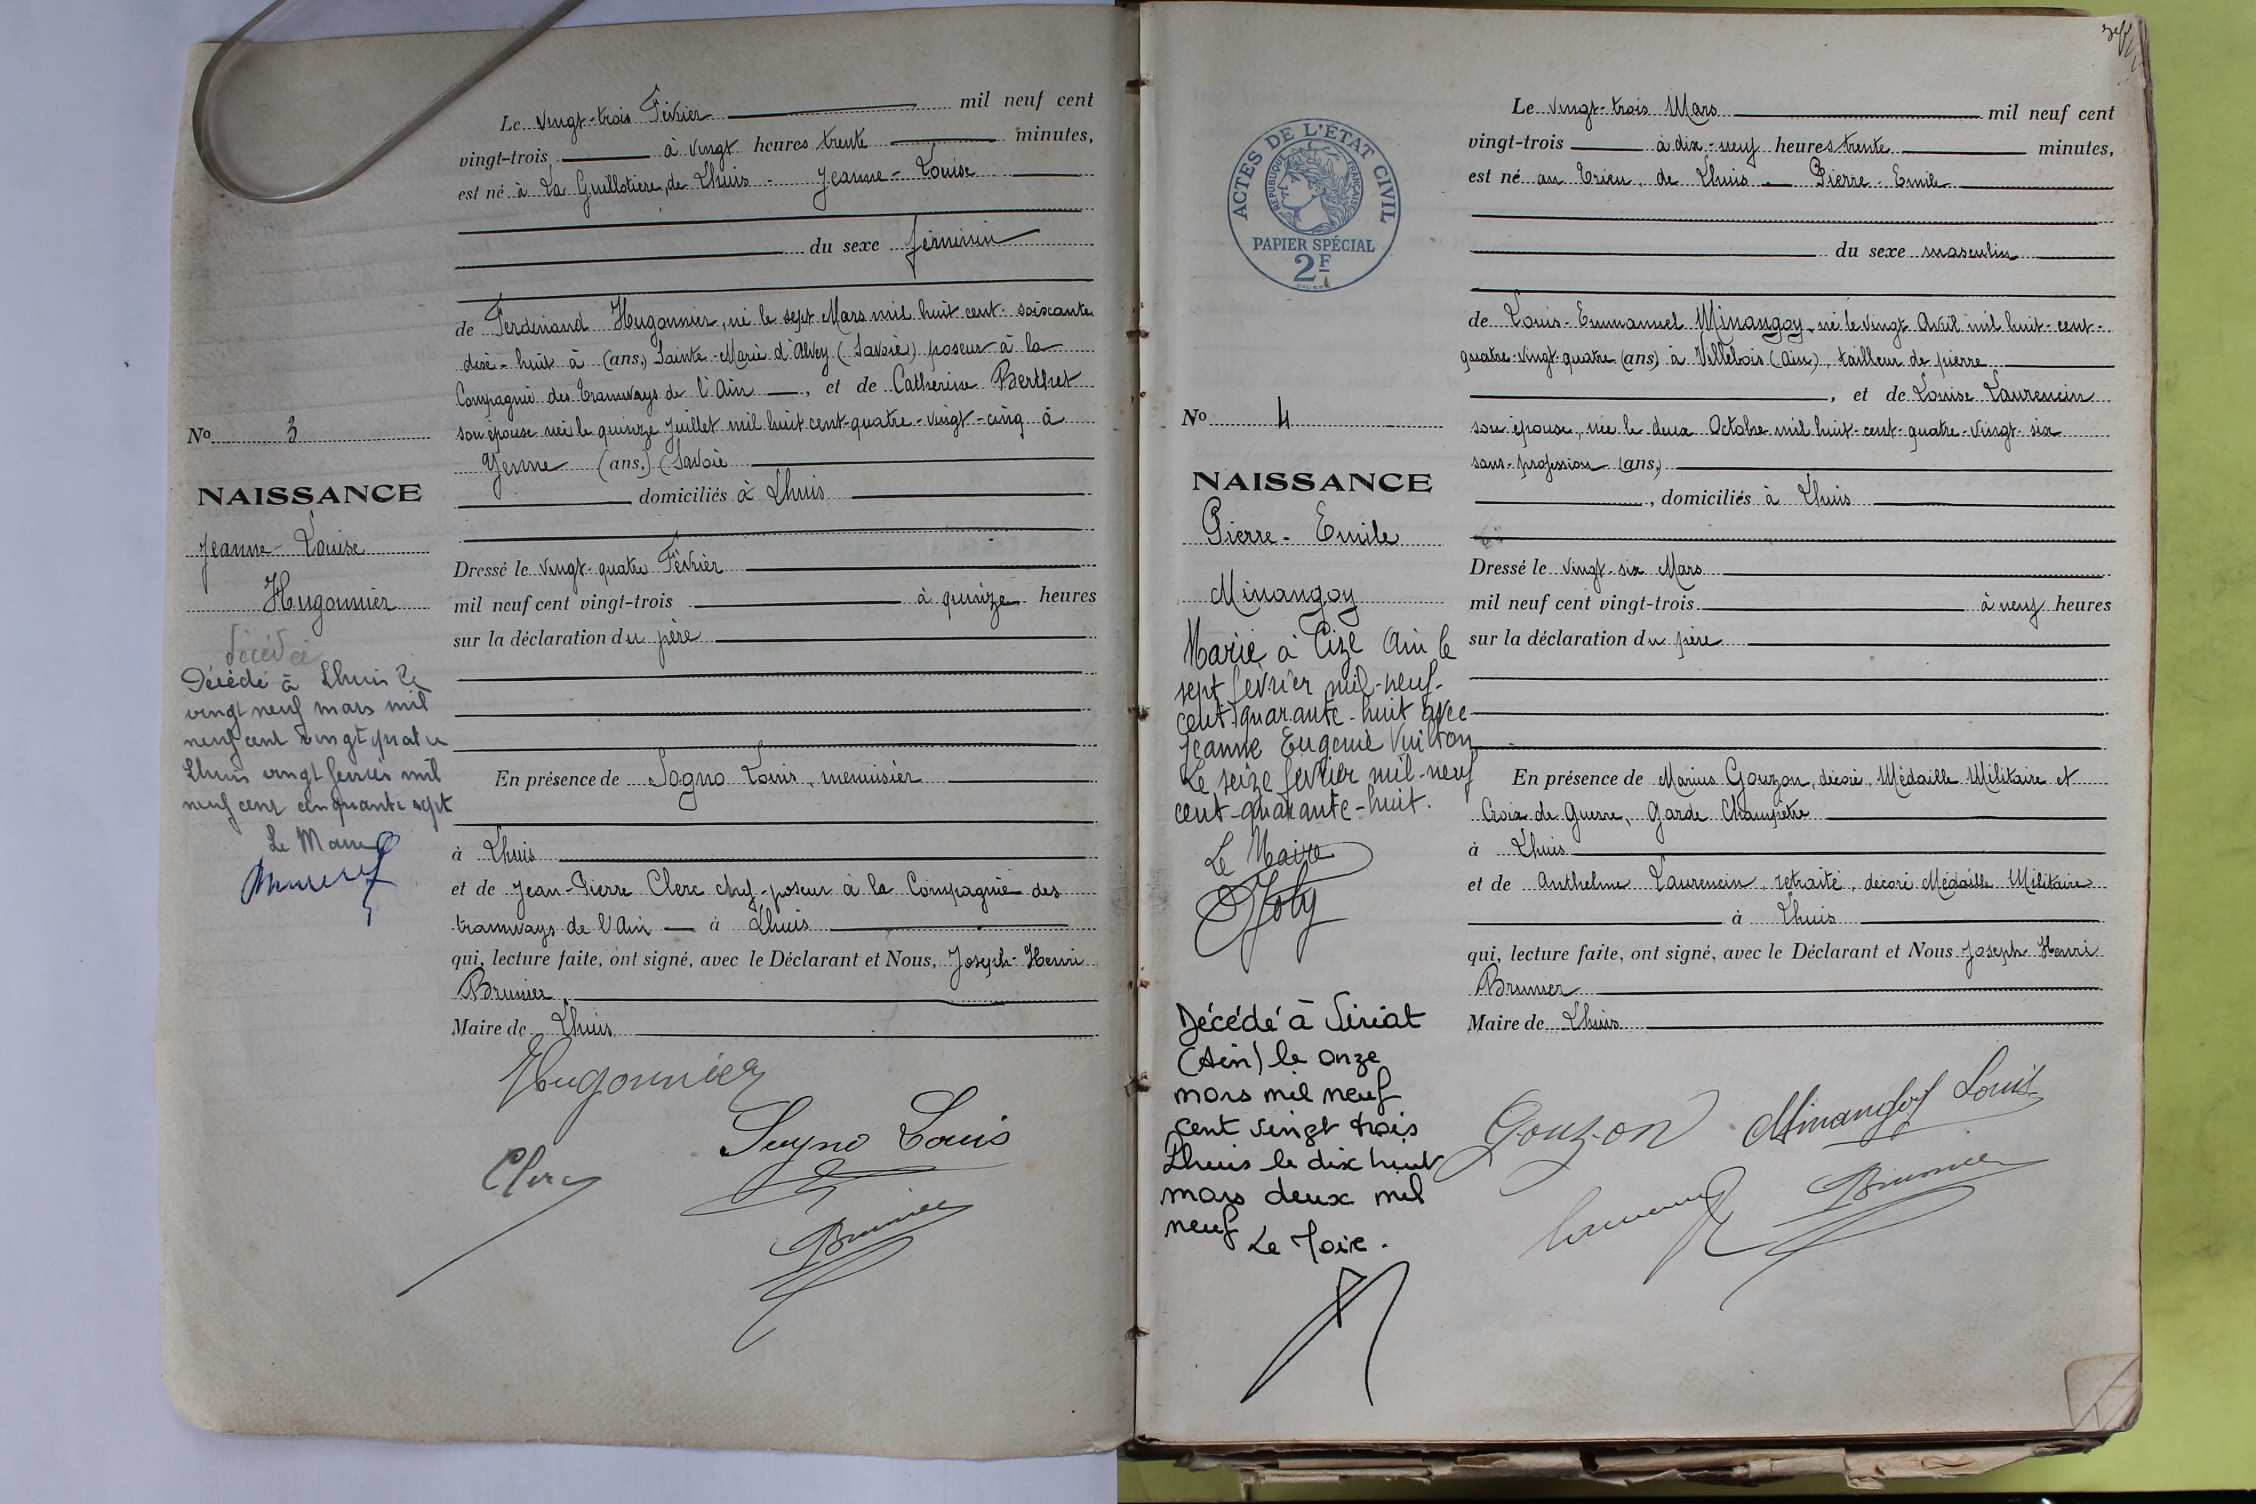 Le vingt-trois Février mil neuf cent
vingt-trois à vingt heures trente minutes,
est né à La Guillotière, de Lhuis - Jeanne - Louise
du sexe féminin
de Ferdinand Hugonnier, né le sept Mars mil huit cent soixante
dix-huit à (ans,) Sainte-Marie d'Alvey (Savoie) poseur à la
Compagnie des Tramways de l'Ain, et de Catherine Berthet
son épouse née le quinze Juillet mil huit cent-quatre-vingt-cinq à
Yenne (ans,) (Savoie
domiciliés à Lhuis
Dressé le vingt-quatre Février
mil neuf cent vingt-trois à quinze heures
sur la déclaration du père
En présence de Sogno Louis, menuisier
à Lhuis
et de Jean-Pierre Clerc chef-poseur à la Compagnie des
tramways de l'Ain à Lhuis
qui, lecture faite, ont signé, avec le Déclarant et Nous, Joseph-Henri
Brunier
Maire de Lhuis
Hugonnier
Sogno Louis
Clerc
Brunier
No 3
NAISSANCE
Jeanne-Louise
Hugonnier
décédée
Décédé à Lhuis le
vingt neuf mars mil
neuf cent vingt quatre
Lhuis vingt février mil
neuf cent cinquante sept
Le Maire
ACTES DE L'ETAT CIVIL
REPUBLIQUE FRANÇAISE
PAPIER SPÉCIAL
2F
No 4
NAISSANCE
Pierre-Emile
Minangoy
Marié à Cize Ain le
sept février mil-neuf-
cent-quarante-huit avec
Jeanne Eugenie Vuitton
Le seize février mil-neuf
cent-quarante-huit.
Le Maire
Joly
Décédé à Viriat
(Ain) le onze
mars mil neuf
cent vingt trois
Lhuis le dix huit
mars deux mil
neuf Le Maire.
Le vingt-trois Mars mil neuf cent
vingt-trois à dix-neuf heures trente minutes,
est né au Crieu, de Lhuis Pierre-Emile
du sexe masculin
de Louis-Emmanuel Minangoy, né le vingt Avril mil huit-cent-
quatre-vingt-quatre (ans) à Villebois (Ain), tailleur de pierre
, et de Louise Laurencin
son épouse, née le deux Octobre mil huit-cent-quatre-vingt-six
sans-profession (ans,)
, domiciliés à Lhuis
Dressé le vingt-six Mars
mil neuf cent vingt-trois à neuf heures
sur la déclaration du père
En présence de Marius Gouzon, décoré, Médaille Militaire et
Croix de Guerre, Garde Champêtre
à Lhuis
et de Anthelme Laurencin, retraité, décoré Médaille Militaire
à Lhuis
qui, lecture faite, ont signé, avec le Déclarant et Nous Joseph Henri
Brunier
Maire de Lhuis
Gouzon Minangoy Louis
Laurencin Brunier